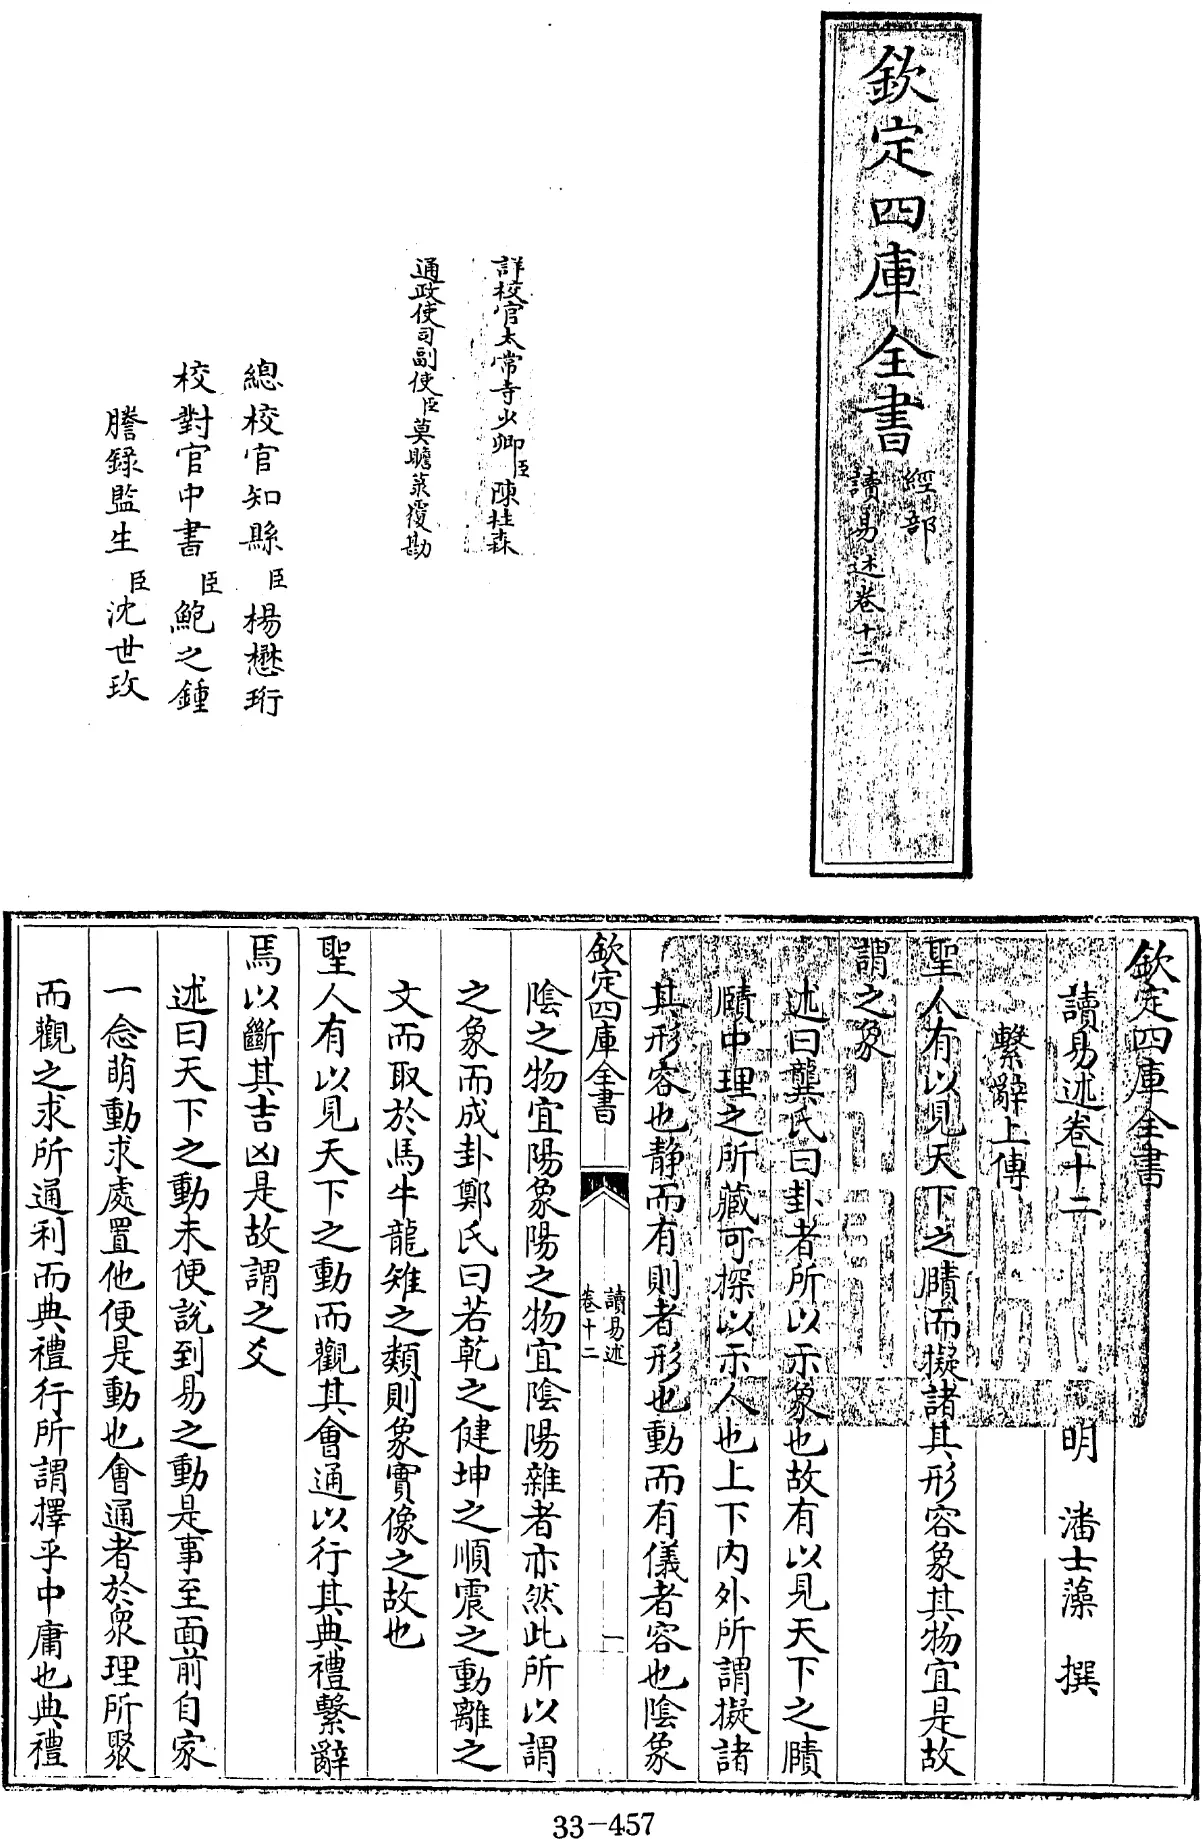 欽定四庫全書
經部
讀易述卷十二
詳校官太常寺少卿臣陳桂森
通政使司副使臣莫瞻菉覆勘
總校官知縣臣楊懋珩
校對官中書臣鮑之鍾
謄錄監生臣沈世玫
欽定四庫全書
讀易述卷十二 明 潘士藻 撰
繫辭上傳
聖人有以見天下之賾而擬諸其形容象其物宜是故
謂之象
述曰龔氏曰卦者所以示象也故有以見天下之賾
賾中理之所藏可探以示人也上下内外所謂擬諸
其形容也靜而有則者形也動而有儀者容也陰象
欽定四庫全書
讀易述
卷十二
一
陰之物宜陽象陽之物宜陰陽雜者亦然此所以謂
之象而成卦鄭氏曰若乾之健坤之順震之動離之
文而取於馬牛龍雉之類則象實像之故也
聖人有以見天下之動而觀其會通以行其典禮繫辭
焉以斷其吉凶是故謂之爻
述曰天下之動未便說到易之動是事至面前自家
一念萌動求處置他便是動也會通者於衆理所聚
而觀之求所通利而典禮行所謂擇乎中庸也典禮
33-457